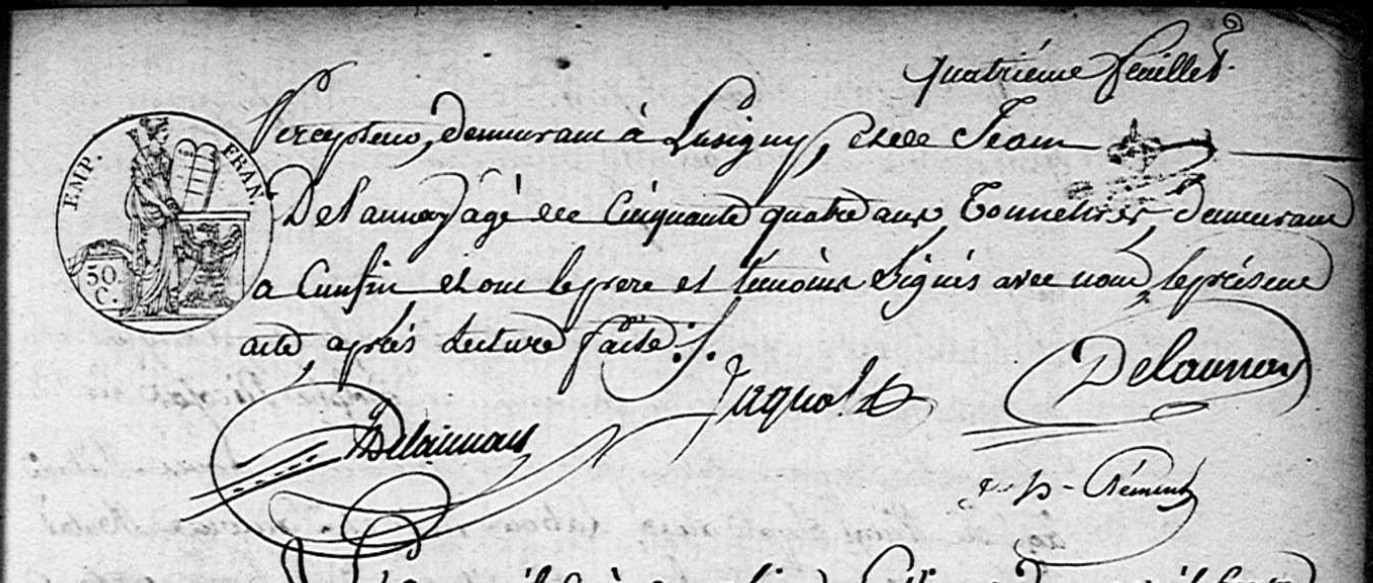 quatriéme feuillet.
EMP. FRAN.
50 C.
Percepteur, demeurant à Lusigny, et de Jean
Delaunay agé de Cinquante quatre ans, Tonnelier, demeurant
a Cunfin et ont le pere et temoins Signés avec nous le présent
acte, après Lecture faite.
Delaunay
Jaquot
Delaunay
Clément